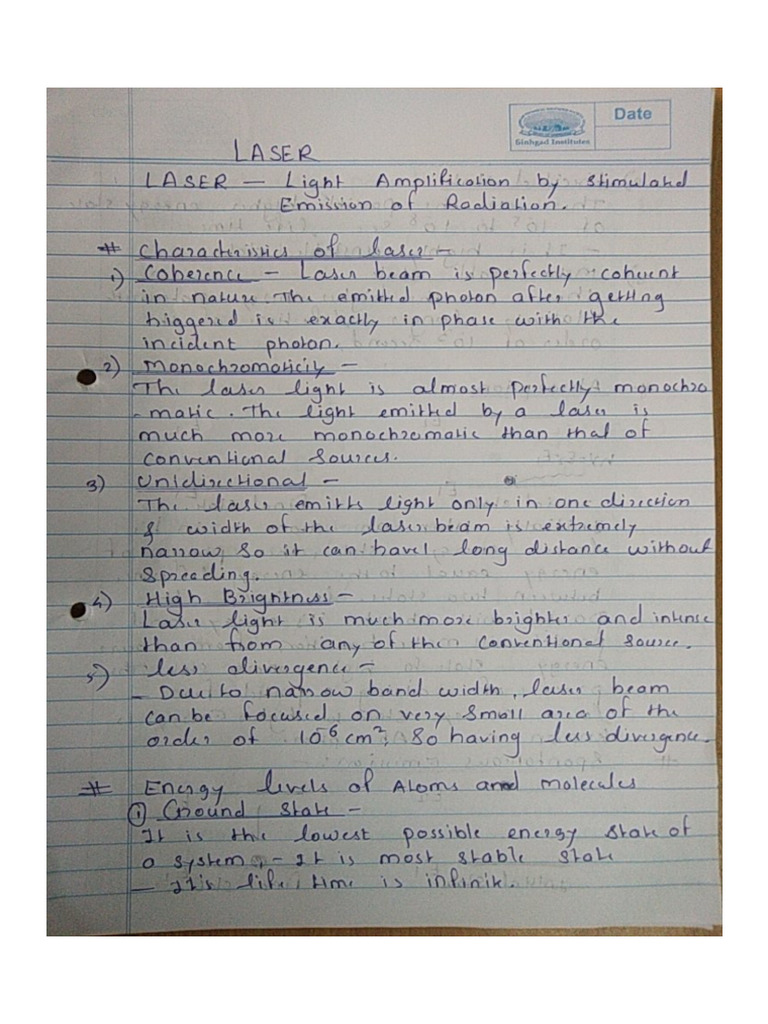 Date
Sinhgad Institutes
LASER
LASER — Light Amplification by Stimulated
Emission of Radiation.
# Characteristics of laser –
1) Coherence – Laser beam is perfectly coherent
in nature. The emitted photon after getting
triggered is exactly in phase with the
incident photon.
2) Monochromaticity –
The laser light is almost perfectly monochro
-matic. The light emitted by a laser is
much more monochromatic than that of
conventional sources.
3) Unidirectional –
The laser emitts light only in one direction
& width of the laser beam is extremely
narrow so it can travel long distance without
spreading.
4) High Brightness –
Laser light is much more brighter and intense
than from any of the conventional source.
5) less divergence –
– Due to narrow band width, laser beam
can be focused on very small area of the
order of 10⁻⁶ cm², so having less divergence.
# Energy levels of Atoms and molecules
① Ground State –
It is the lowest possible energy state of
a system, – It is most stable state
– Its life time is infinite.